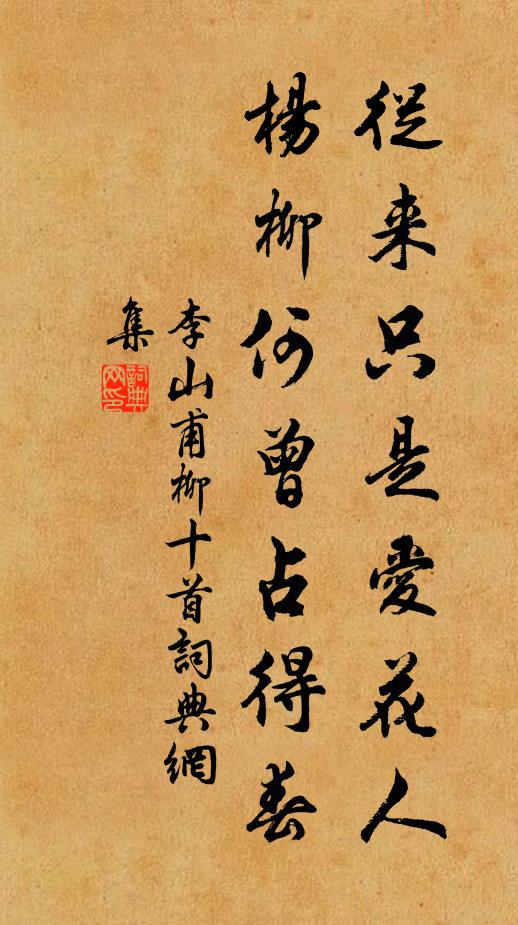 從来只是愛花人
楊柳何曾占得春
李山甫柳十首詞典網
集
詞典網印